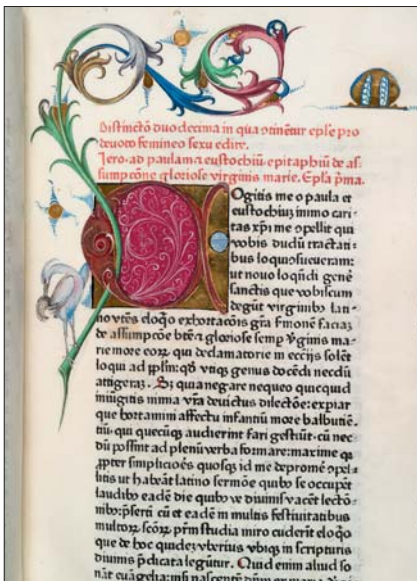 Distinctō duodecima in qua ɔtinēt epl̄e pro
deuoto femineo sexu edite.
Iero. ad paulam ⁊ eustochiū epitaphiū de as⸗
sumpcōne gloriose virginis marie. Epl̄a p̄ma.
COgitis me o paula et
eustochiuȝ immo cari⸗
tas xp̄i me ɔpellit qui
vobis dudū tractati⸗
bus loqui ɔsueueram:
ut nouo loqn̄di genē
sanctis que vobiscum
degūt virginibꝫ lati
no vtēs eloqo exhortacōis gr̄a ẜmonē faciaȝ
de assūmpcōe btē⁊ gloriose semp ѵ̄ginis ma⸗
rie more eoꝝ qui declamatorie in ecciis solēt
loqui ad ppl̄m: qḋ vtiqꝫ genus docēdi necdū
attigeraȝ. Sȝ quia negare nequeo quicquid
iniūgitis nimia vr̄a deuictus dilectōe: expiar
que hortamini affectu infantiū more balbutiē⸗
tiū. qui quecūqꝫ audierint fari gestiūt. cū nec
dū possint ad plenū verba formare: maxime qꝛ
ꝓpter simplicioēs quosqꝫ id me depromē ɔpel⸗
litis ut habeāt latino sermōe quibꝫ se occupēt
laudibꝫ ea die quibꝫ ⁊ diuinis vacēt lectō⸗
nibꝫ: p̄serti cū et ea die in multis festiuitatibus
multoꝝ scōꝝ p̄rm studia miro cuderit eloqo
que de hoc quideȝ vberius vbiqꝫ in scripturis
diuinis p̄dicata legūtur. Quid enim aliud so
nāt euāgelia: nisi nascentē